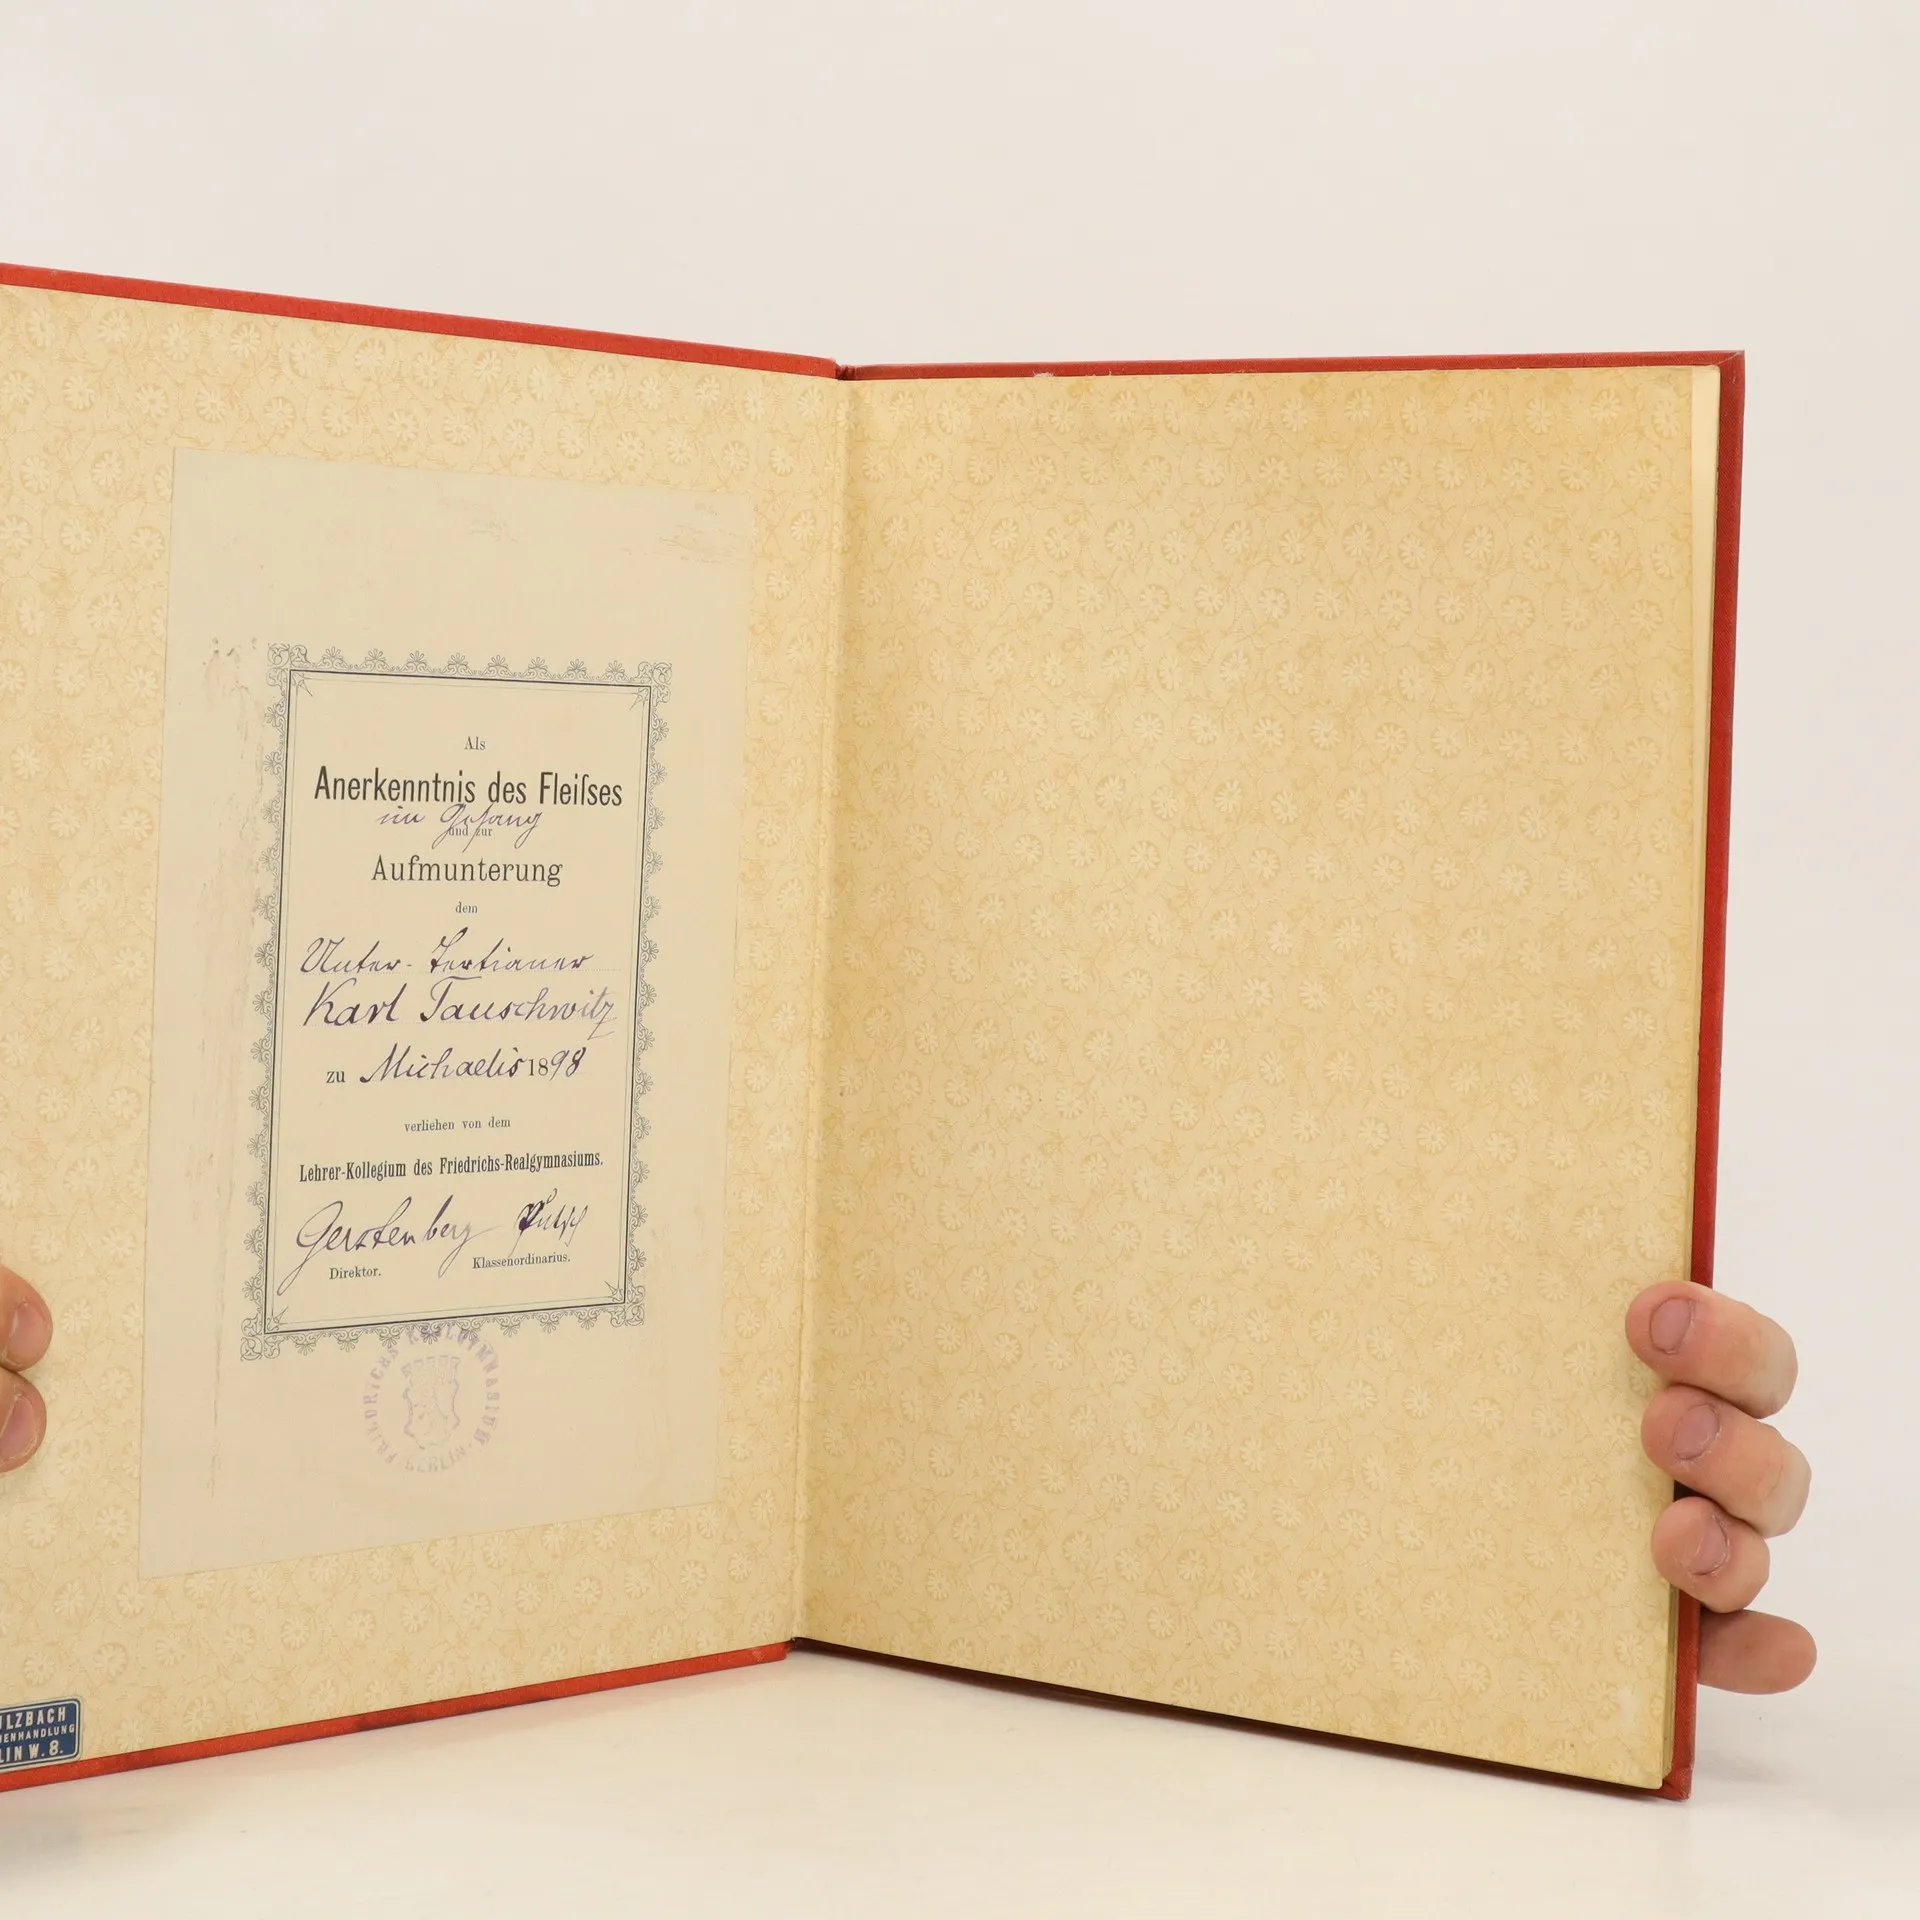 Als
Anerkenntnis des Fleiſses
im Gesang
und zur
Aufmunterung
dem
Unter-Tertianer
Karl Tauschwitz
zu Michaelis 1898
verliehen von dem
Lehrer-Kollegium des Friedrichs-Realgymnasiums.
Gerstenberg
Direktor. Klassenordinarius.
FRIEDRICHS REALGYMNASIUM BERLIN
ULZBACH
ENHANDLUNG
LIN W. 8.